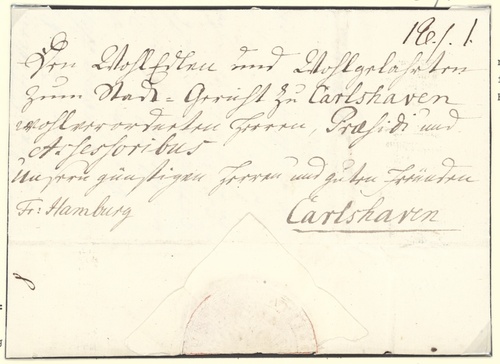 18./.1.
Den WohlEdlen und Wohlgelahrten
zum Stadt=Gericht zu Carlshaven
wohlverordneten Herren, Præsidi und
Assessoribus
Unsern günstigen Herren und guten Freünden
Fr: Hamburg
Carlshaven